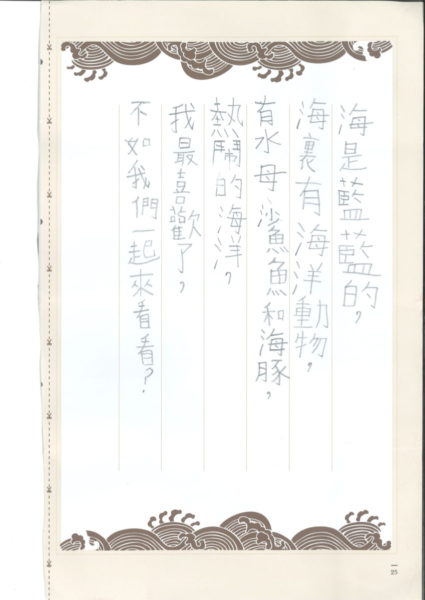 海是藍藍的，
海裏有海洋動物，
有水母、沙鯊魚和海豚，
熱鬧的海洋，
我最喜歡了，
不如我們一起來看看？
25